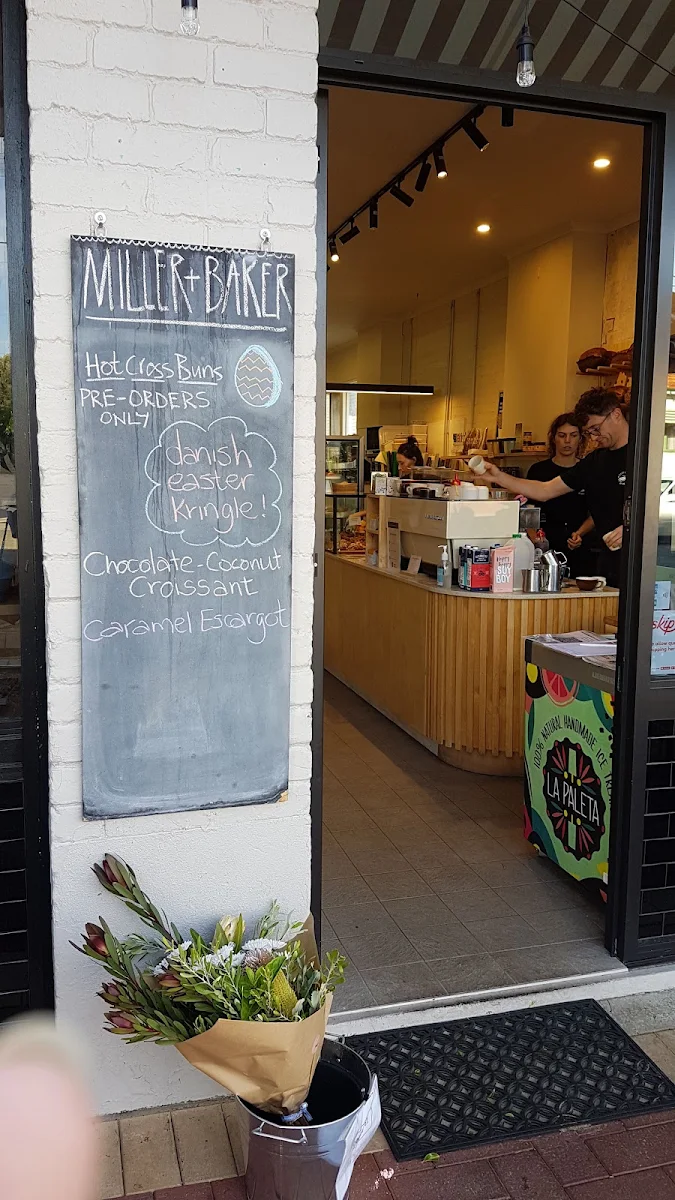 MILLER + BAKER
Hot Cross Buns
PRE-ORDERS
ONLY
danish
easter
kringle!
Chocolate-Coconut
Croissant
Caramel Escargot
SOY
BOY
skip
100% NATURAL HANDMADE ICE
LA PALETA